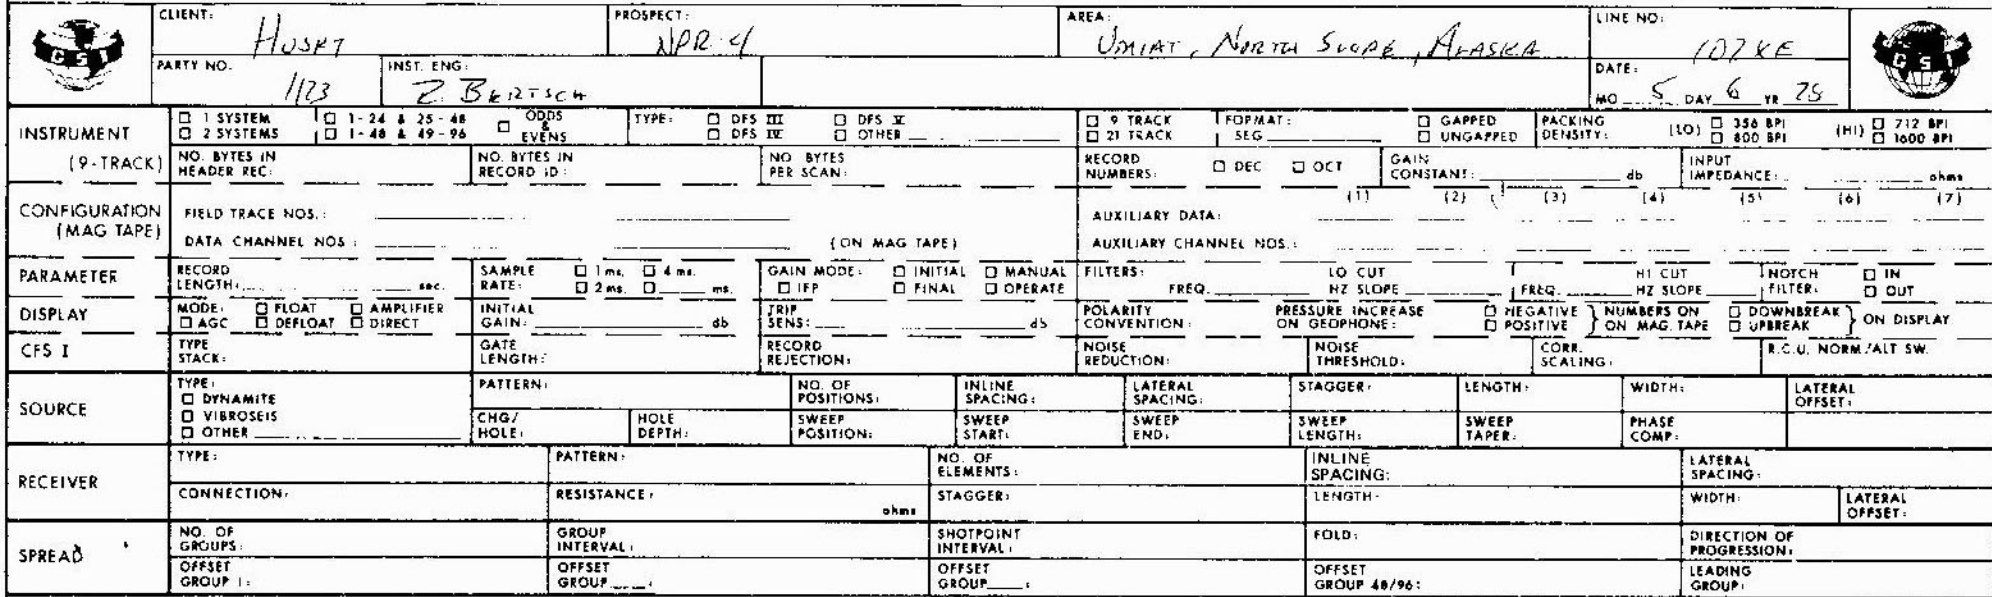 CLIENT: HUSKY PROSPECT: NPR-4 AREA: UMIAT, NORTH SLOPE, ALASKA LINE NO:
GSI GSI
PARTY NO. 1123 INST. ENG: BERTSCH DATE: MO 5 DAY 6 YR 75
INSTRUMENT (9-TRACK) ☐ 1 SYSTEM ☐ 1-24 & 25-48 ☐ ODDS & EVENS TYPE: ☐ DFS III ☐ DFS V ☐ 9 TRACK FORMAT: ☐ GAPPED PACKING DENSITY: (LO) ☐ 356 BPI (HI) ☐ 712 BPI
☐ 2 SYSTEMS ☐ 1-48 & 49-96 ☐ DFS IV ☐ OTHER ☐ 21 TRACK SEG ☐ UNGAPPED ☐ 800 BPI ☐ 1600 BPI
NO. BYTES IN HEADER REC: NO. BYTES IN RECORD ID: NO BYTES PER SCAN: RECORD NUMBERS: ☐ DEC ☐ OCT GAIN CONSTANT: db INPUT IMPEDANCE: ohms
CONFIGURATION (MAG TAPE) FIELD TRACE NOS.: AUXILIARY DATA: (1) (2) (3) (4) (5) (6) (7)
DATA CHANNEL NOS: (ON MAG TAPE) AUXILIARY CHANNEL NOS.:
PARAMETER RECORD LENGTH: sec. SAMPLE RATE: ☐ 1 ms. ☐ 4 ms. ☐ 2 ms. ☐ ms. GAIN MODE: ☐ INITIAL ☐ MANUAL ☐ IFP ☐ FINAL ☐ OPERATE FILTERS: LO CUT FREQ. HZ SLOPE HI CUT FREQ. HZ SLOPE NOTCH FILTER: ☐ IN ☐ OUT
DISPLAY MODE: ☐ FLOAT ☐ AMPLIFIER ☐ AGC ☐ DEFLOAT ☐ DIRECT INITIAL GAIN: db TRIP SENS: db POLARITY CONVENTION: PRESSURE INCREASE ON GEOPHONE: ☐ NEGATIVE ☐ POSITIVE } NUMBERS ON MAG. TAPE ☐ DOWNBREAK ☐ UPBREAK } ON DISPLAY
CFS I TYPE STACK: GATE LENGTH: RECORD REJECTION: NOISE REDUCTION: NOISE THRESHOLD: CORR. SCALING: R.C.U. NORM/ALT SW.
SOURCE TYPE: ☐ DYNAMITE ☐ VIBROSEIS ☐ OTHER PATTERN: NO. OF POSITIONS: INLINE SPACING: LATERAL SPACING: STAGGER: LENGTH: WIDTH: LATERAL OFFSET:
CHG/HOLE: HOLE DEPTH: SWEEP POSITION: SWEEP START: SWEEP END: SWEEP LENGTH: SWEEP TAPER: PHASE COMP:
RECEIVER TYPE: PATTERN: NO. OF ELEMENTS: INLINE SPACING: LATERAL SPACING:
CONNECTION: RESISTANCE: ohms STAGGER: LENGTH: WIDTH: LATERAL OFFSET:
SPREAD NO. OF GROUPS: GROUP INTERVAL: SHOTPOINT INTERVAL: FOLD: DIRECTION OF PROGRESSION:
OFFSET GROUP 1: OFFSET GROUP : OFFSET GROUP : OFFSET GROUP 48/96: LEADING GROUP: